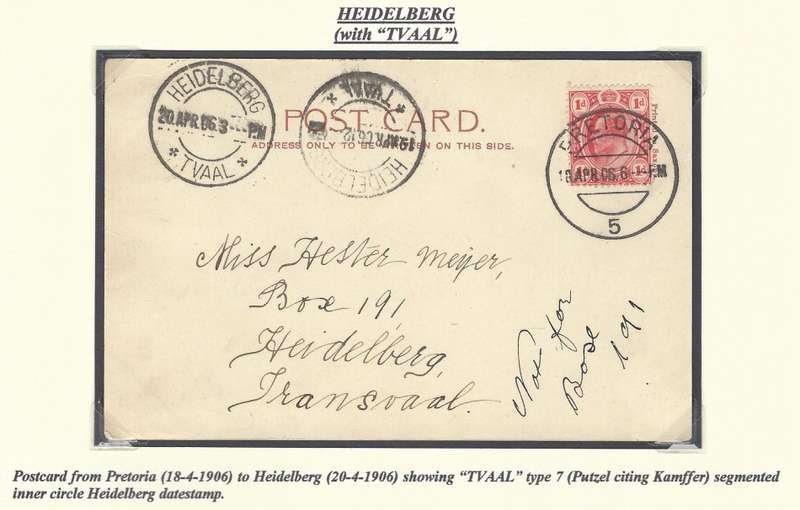 HEIDELBERG
(with “TVAAL”)
HEIDELBERG
20.APR.06.3 PM
* TVAAL *
* TVAAL *
19.APR.06.12
HEIDELBERG
POST CARD.
ADDRESS ONLY TO BE WRITTEN ON THIS SIDE.
1d 1d
1d
PRETORIA
18.APR.06.6 PM
5
Miss Hester Meyer,
Box 191
Heidelberg,
Transvaal.
Not for
Box
191
Postcard from Pretoria (18-4-1906) to Heidelberg (20-4-1906) showing “TVAAL” type 7 (Putzel citing Kamffer) segmented
inner circle Heidelberg datestamp.